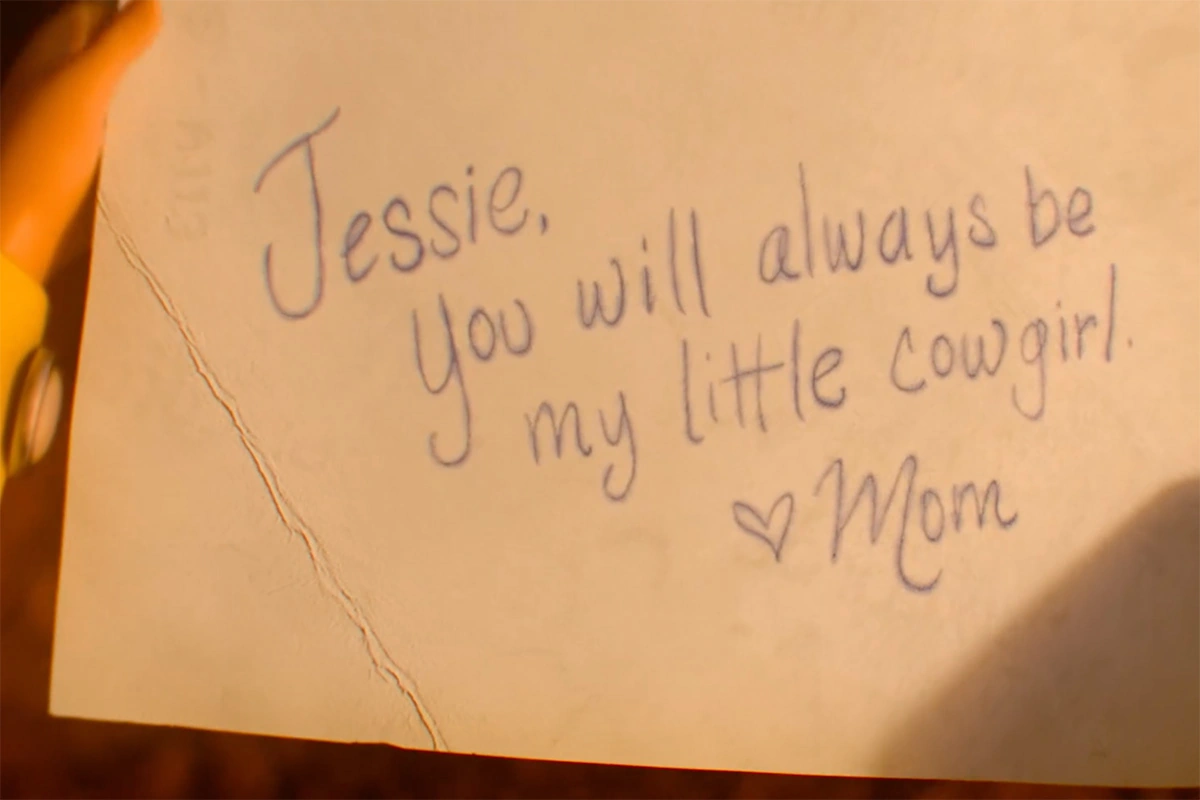 Jessie,
You will always be
my little cowgirl.
♥ Mom